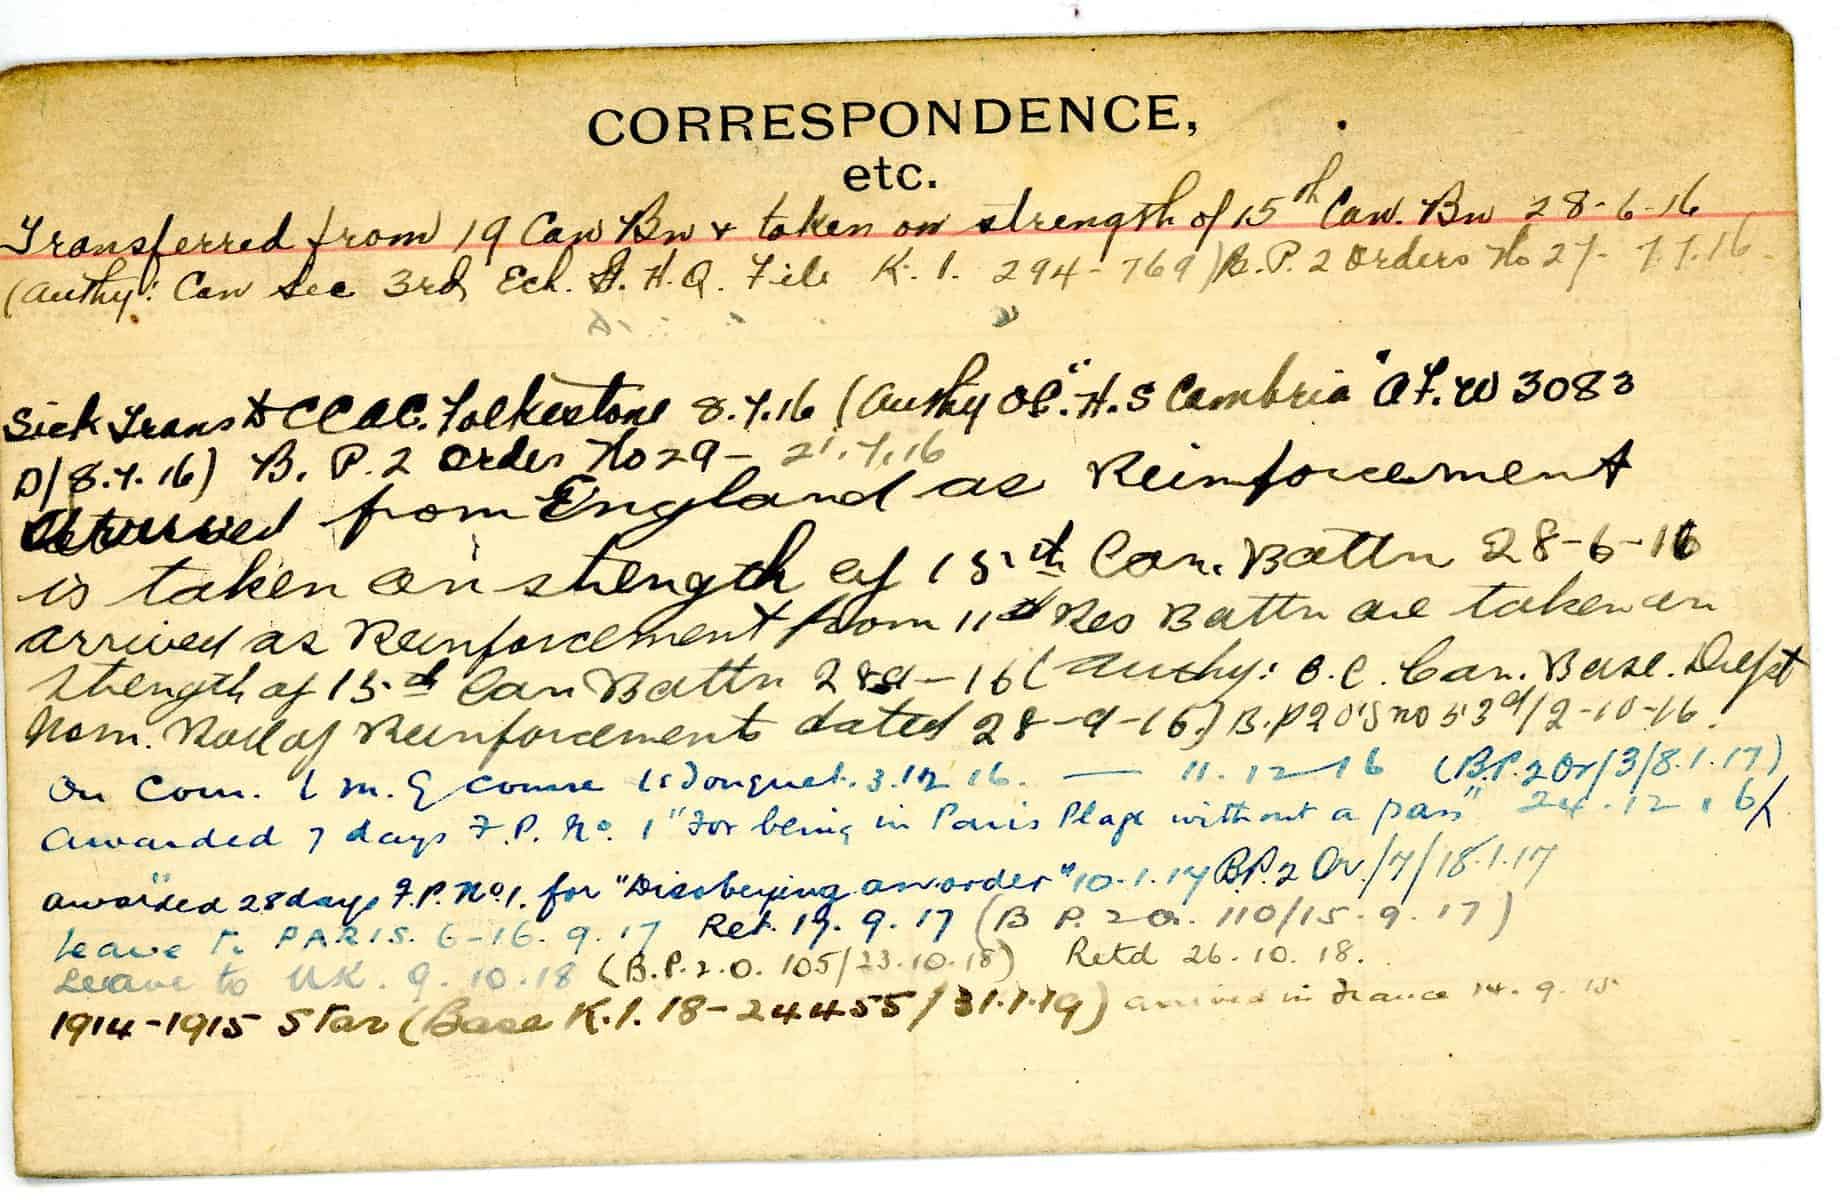 CORRESPONDENCE,
etc.
Transferred from 19 Can Bn & taken on strength of 15th Can. Bn 28-6-16
(Authy: Can Sec 3rd Ech. G.H.Q. File K.1. 294-769) B.P.2 Orders No 27- 7.7.16
Sick Trans to CCAC. Folkestone 8.7.16 (Authy OC. "H.S Cambria" A.F.W 3083
D/8.7.16) B.P.2 Order No 29- 21.7.16
from England as Reinforcement
is taken on strength of 15th Can. Battn 28-6-16
arrived as Reinforcement from 11th Res Battn are taken on
strength of 15th Can Battn 28-9-16 (Authy: O.C. Can. Base. Depot
Nom. Roll of Reinforcements dated 28-9-16) B.P 2 O's no 53 d/2-10-16.
On Com. L M. G course Le Touquet. 3.12.16. — 11.12-16 (B.P.2 Or/3/8.1.17)
Awarded 7 days F.P. No. 1 "For being in Paris Plage without a pass" 24.12.16/
awarded 28 days F.P. No.1. for "Disobeying an order" 10.1.17 B.P.2 Or./7/18.1.17
Leave to PARIS. 6-16.9.17 Ret. 19.9.17 (B P. 2 O. 110/15.9.17)
Leave to UK. 9.10.18 (B.P.2.O. 105/23.10.18) Retd 26.10.18.
1914-1915 Star (Base K.1.18-24455/31.1.19) arrived in France 14.9.15